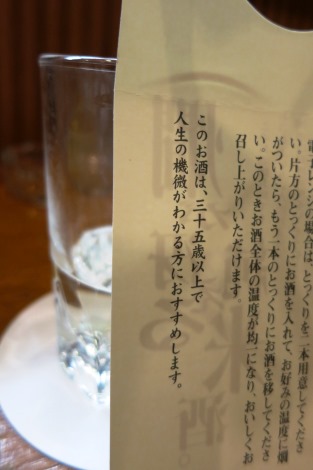 電子レンジの場合は、とっくりを二本用意してくださ
い。片方のとっくりにお酒を入れて、お好みの温度に燗
がついたら、もう一本のとっくりにお酒を移してくださ
い。このときお酒全体の温度が均一になり、おいしくお
召し上がりいただけます。
このお酒は、三十五歳以上で
人生の機微がわかる方におすすめします。